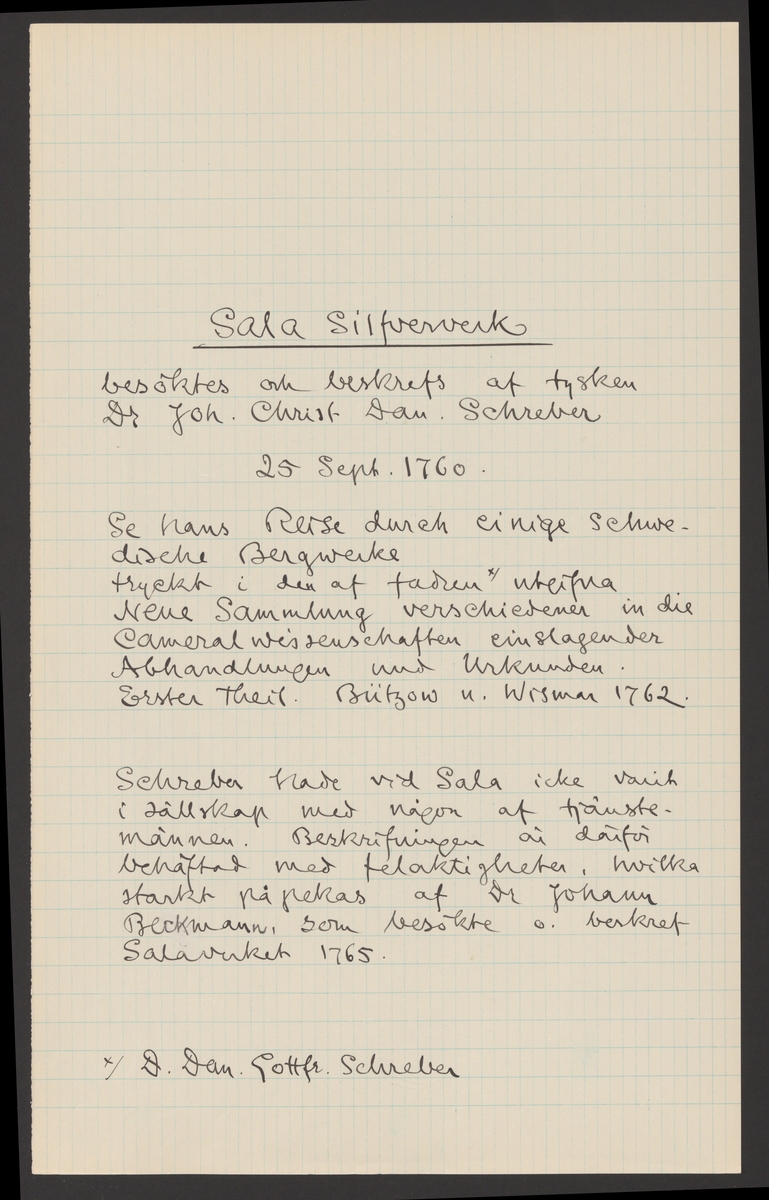 Sala Silfververk
besöktes och beskrefs af tysken
Dr Joh. Christ Dan. Schreber
25 Sept. 1760.
Se hans Reise durch einige Schwe-
dische Bergwerke
tryckt i den af fadren x/ utgifna
Neue Sammlung verschiedener in die
Cameralwissenschaften einslagender
Abhandlungen und Urkunden.
Erster Theil. Bützow u. Wismar 1762.
Schreber hade vid Sala icke varit
i sällskap med någon af tjänste-
männen. Beskrifningen är därför
behäftad med felaktigheter, hvilka
starkt påpekas af Dr Johann
Beckmann, som besökte o. beskref
Salaverket 1765.
x/ D. Dan. Gottfr. Schreber